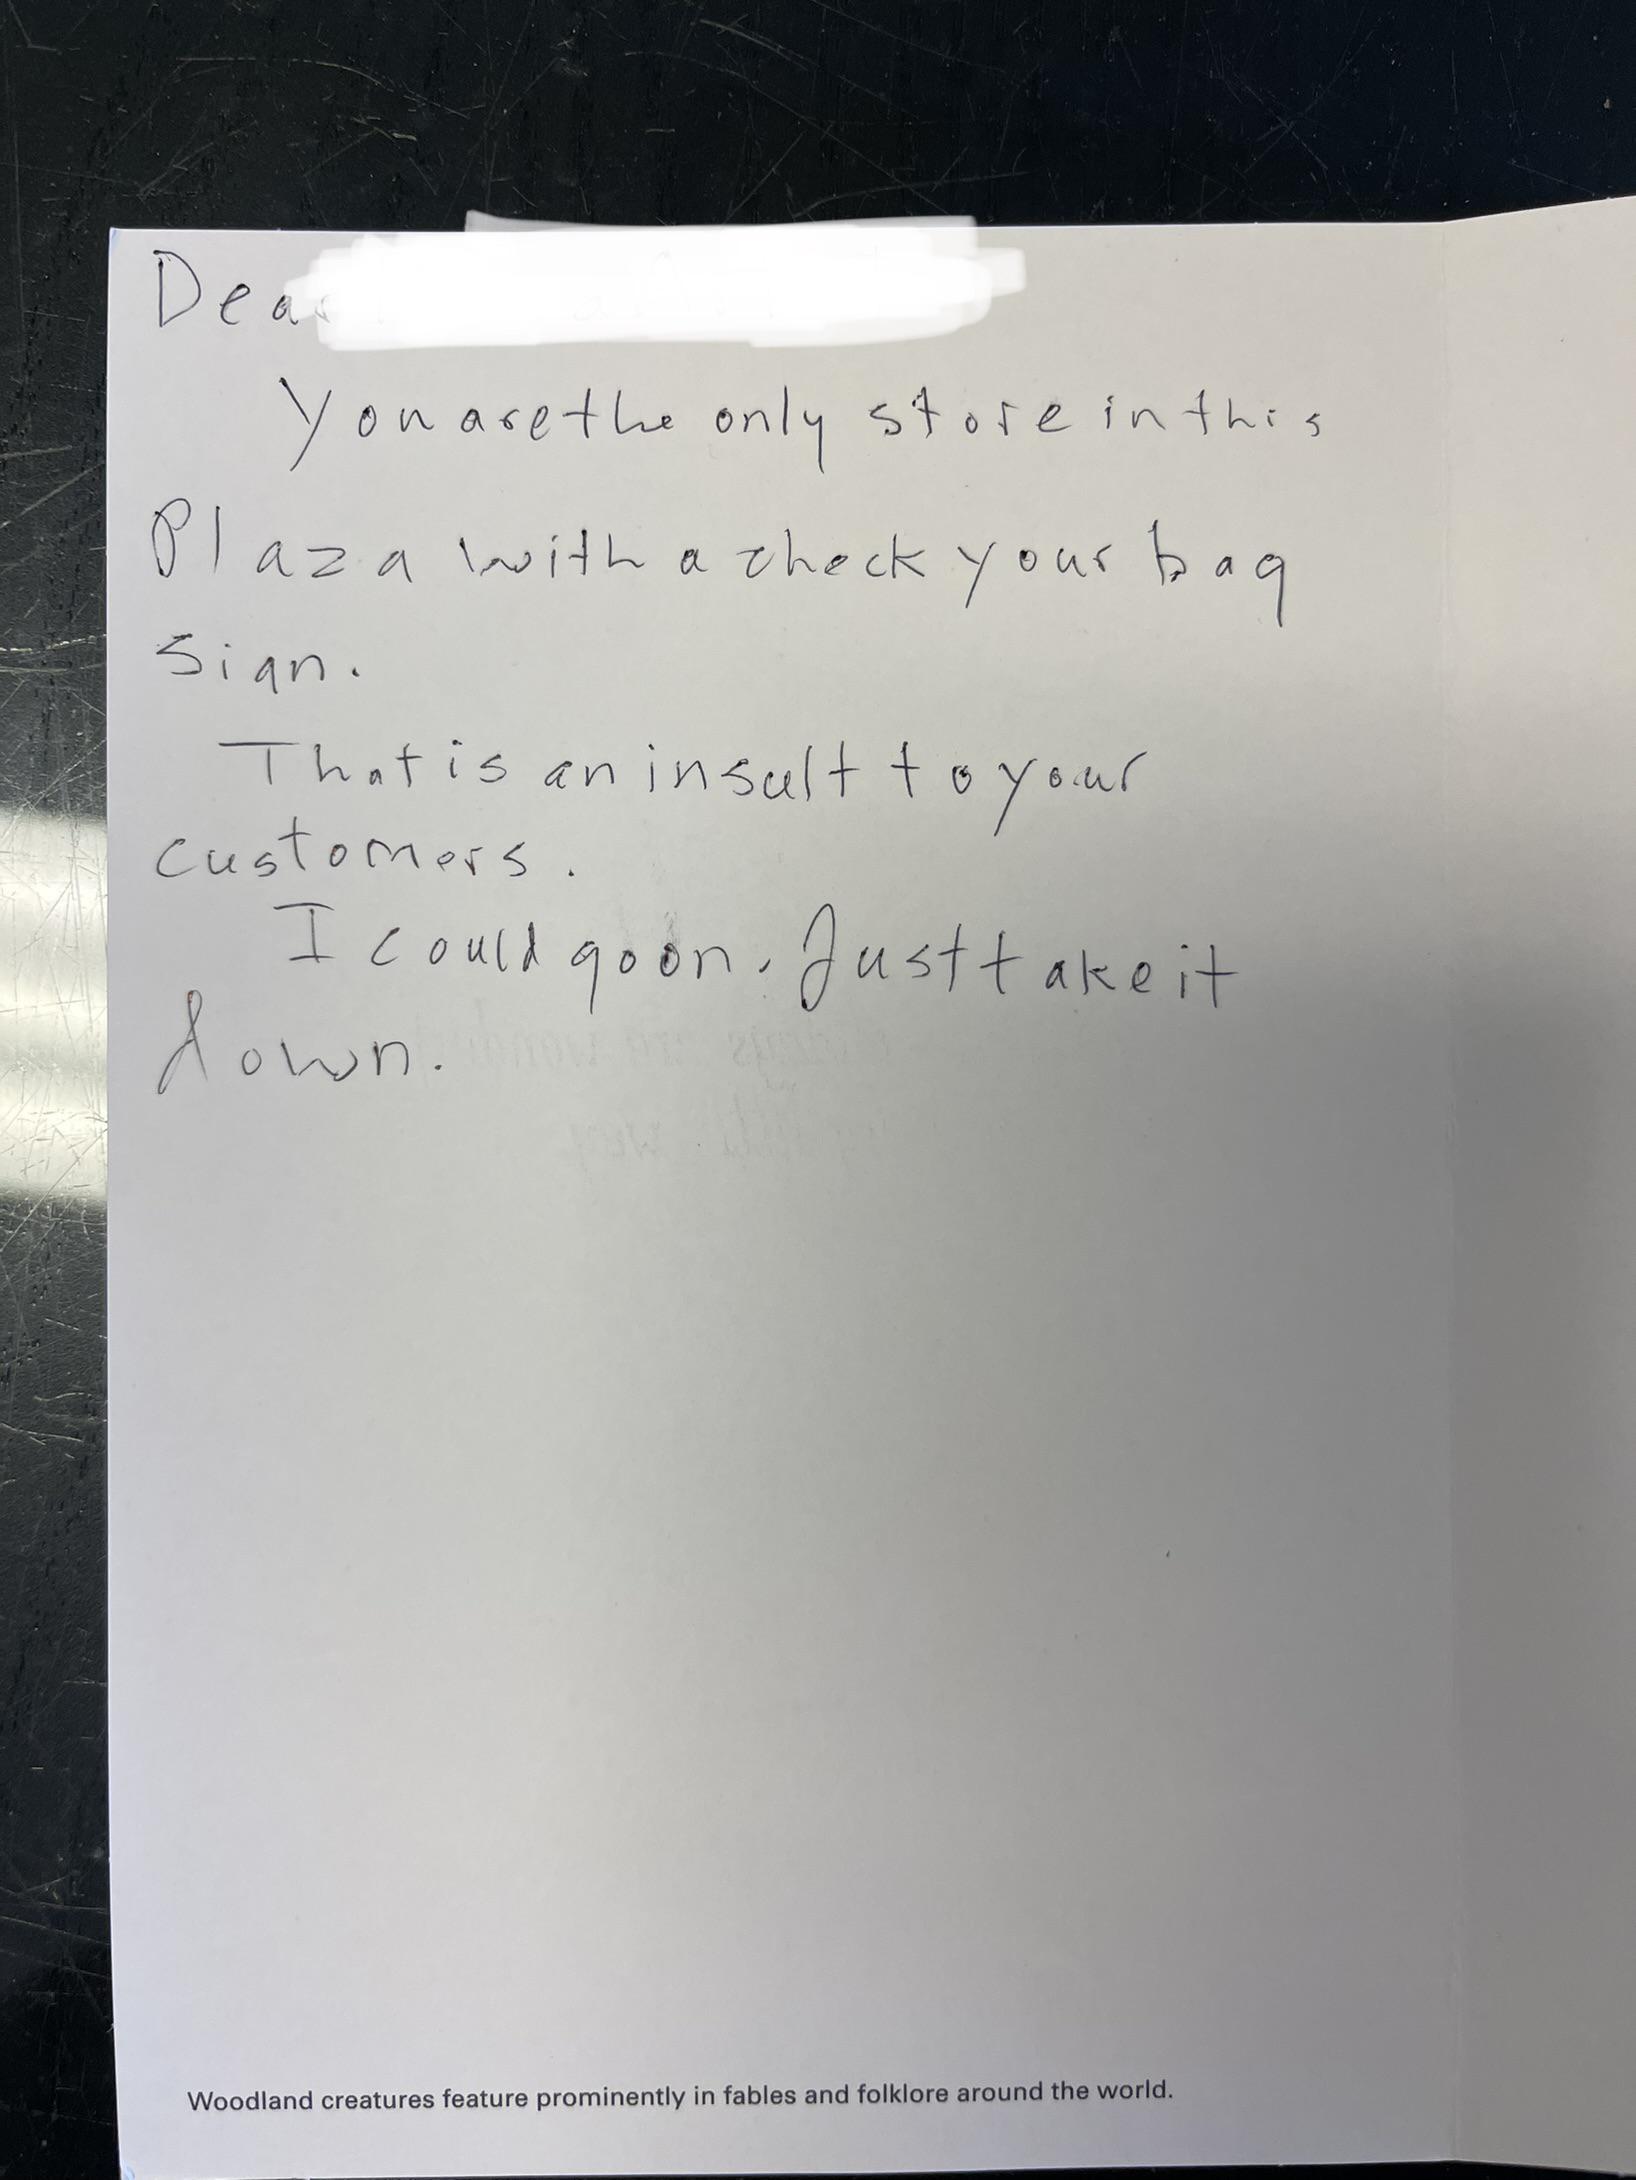 Dear
You are the only store in this
Plaza with a check your bag
sign.
That is an insult to your
customers.
I could go on. Just take it
down.
Woodland creatures feature prominently in fables and folklore around the world.